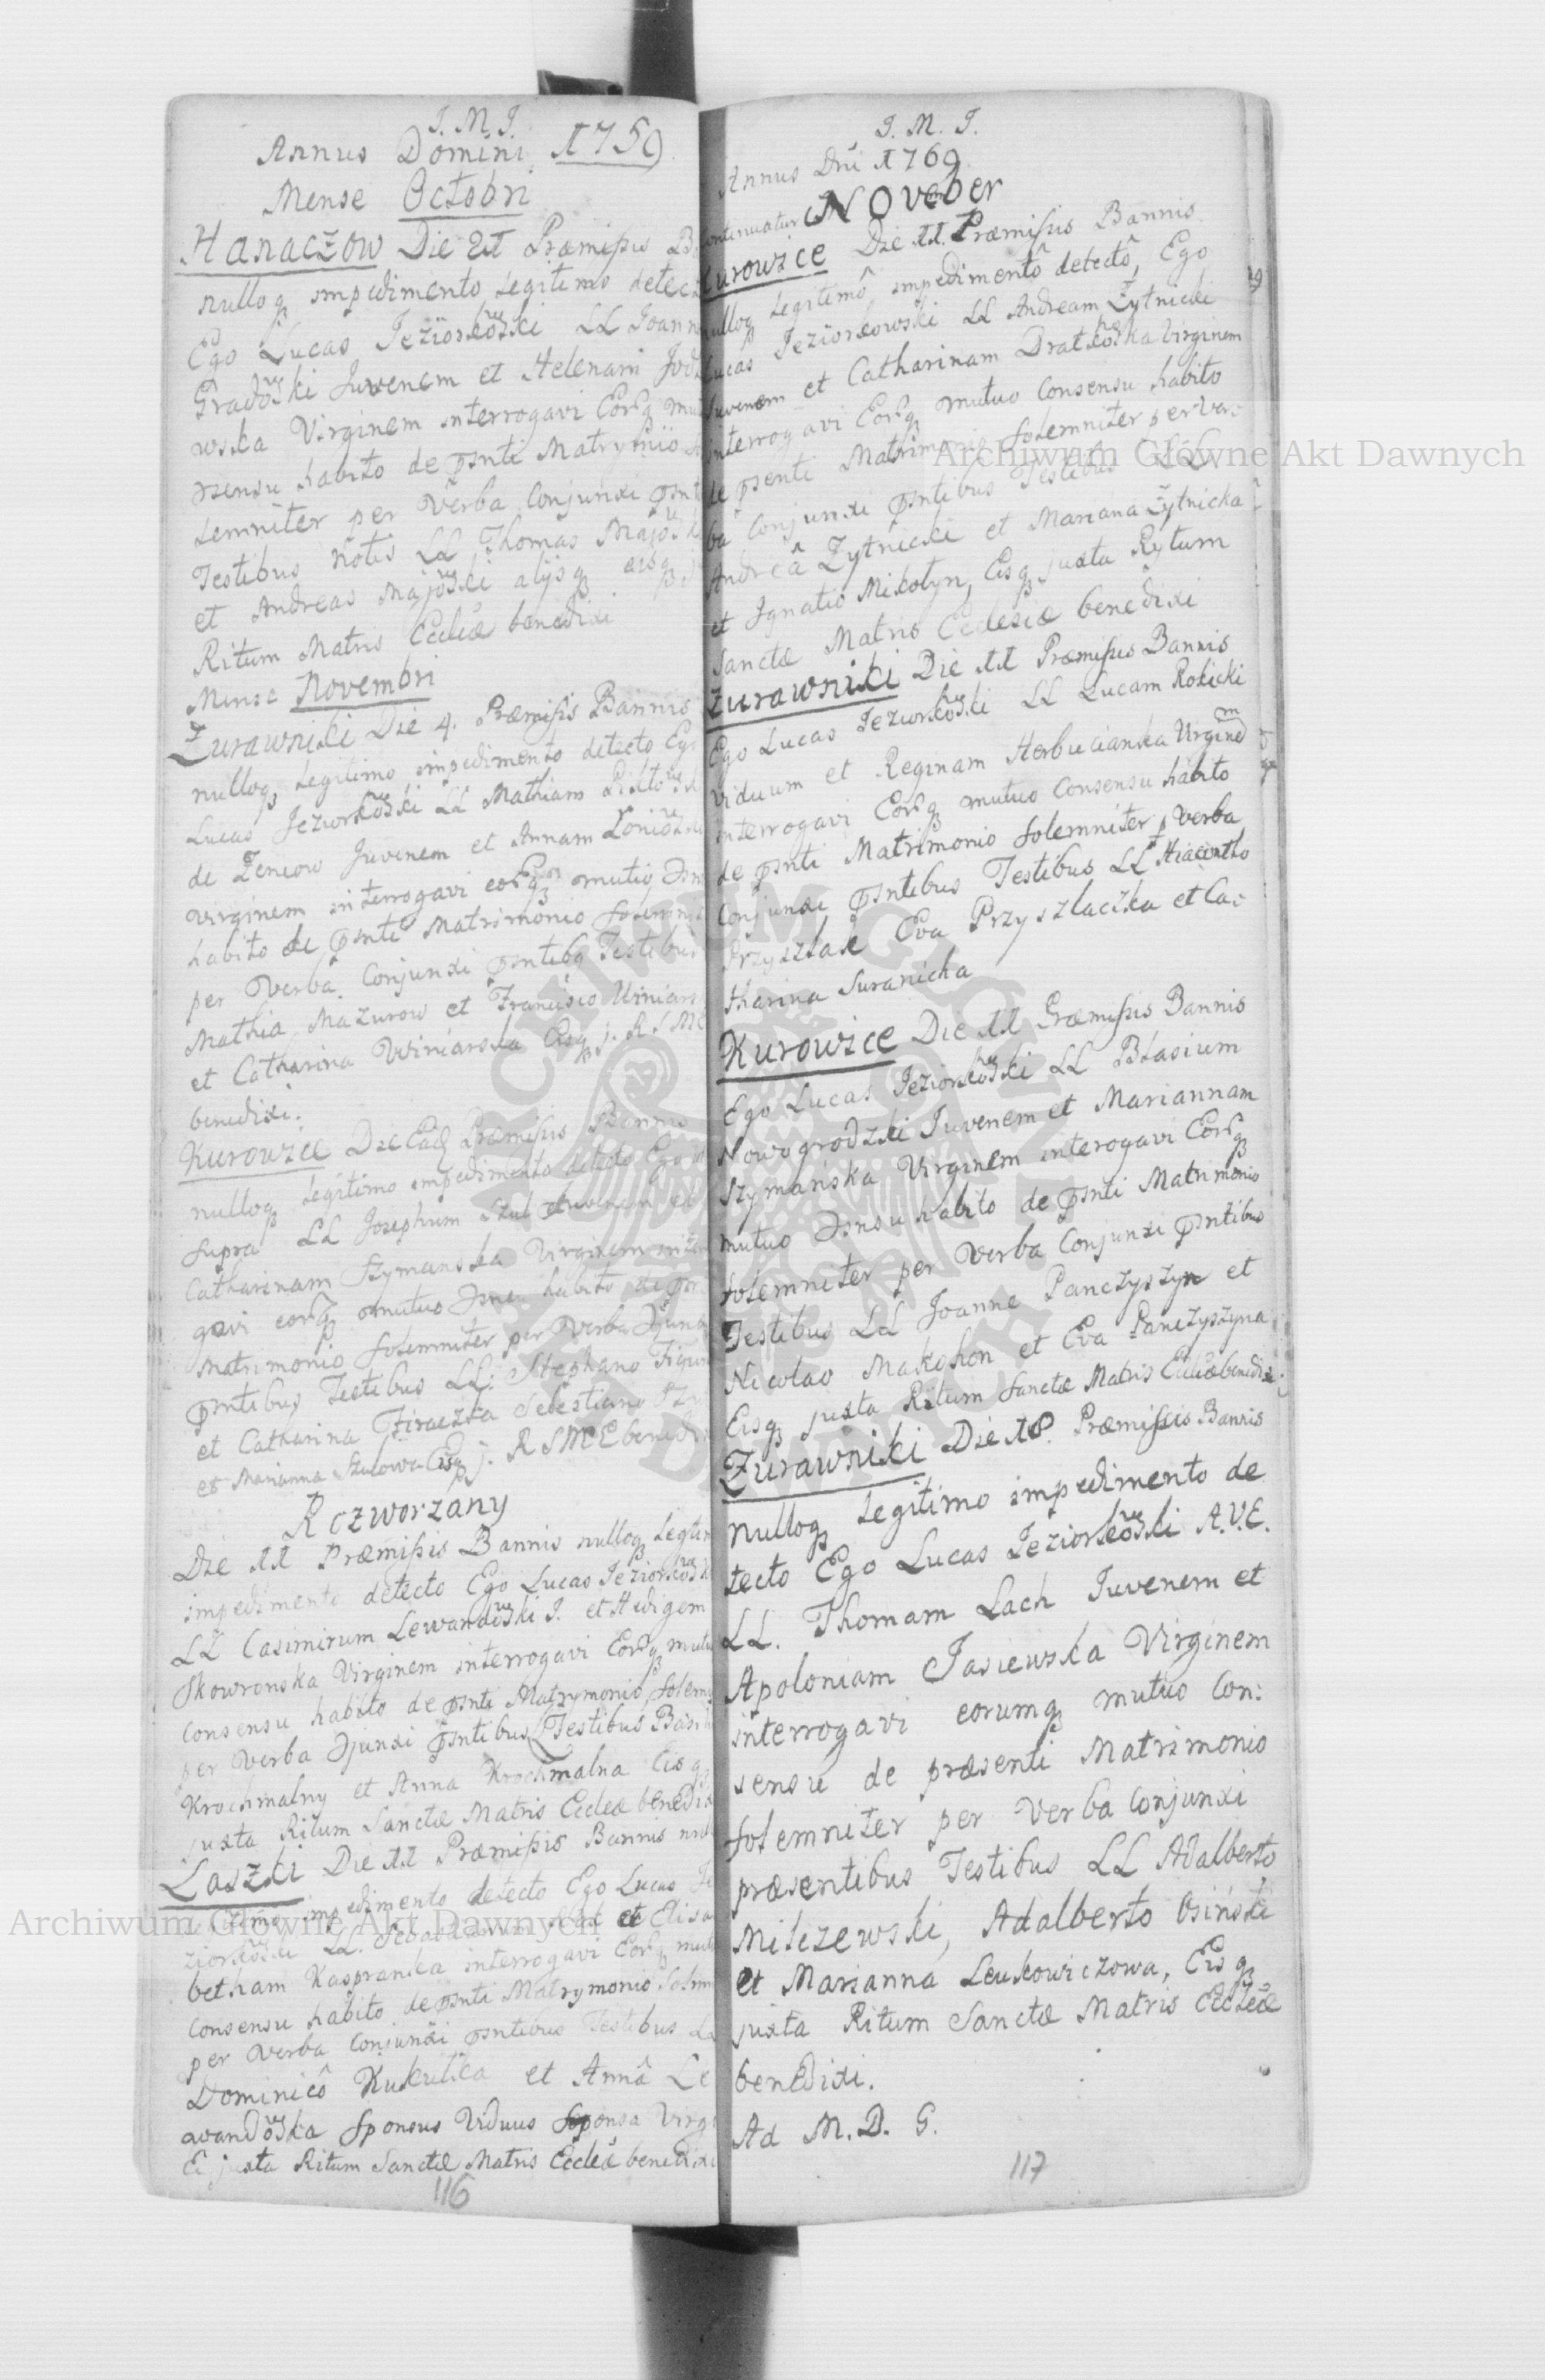 J. M. J.
Annus Domini 1759
Mense Octobri
Hanaczow Die 21 Præmissis B
nulloq impedimento Legitimo detec
Ego Lucas Jeziorkowski LL Joann
Gradowski Juvenem et Helenam
wska Virginem interrogavi Eorq mu
nsensu habito de psnti Matrymio
lemniter per Verba Conjunxi psnt
Testibus Notis LL Thomas Majowsk
et Andreas Majowski alijsq eisq j
Ritum Matris Eccliæ benedixi
Mense Novembri
Zurawniki Die 4. Præmissis Bannis
nulloq Legitimo impedimento detecto Eg
Lucas Jeziorkowski LL Mathiam
de Zeniow Juvenem et Annam
Virginem interrogavi eorq mutuo
habito de psnti Matrimonio solemni
per Verba Conjunxi psntibq Testibus
Mathia Mazurow et Francisco Winiars
et Catharina Winiarska Eisq j. R S M E
benedixi.
Kurowice Die Eadem Præmissis Bannis
nulloq legitimo impedimento detecto Ego
supra LL Josephum Szul Juvenem et
Catharinam Szymanska Virginem inter
gavi eorq mutuo habito de psn
Matrimonio solemniter per Verba
psntibus Testibus LL: Stephano
et Catharina Sebestiano Szy
et Marianna Szulowa Eisq j. R S M E bened
Rozworzany
Die 11 Præmissis Bannis nulloq Legtim
impedimento detecto Ego Lucas Jeziorkowsk
LL Casimirum Lewandowski J. et Hedigem
Skowronska Virginem interrogavi Eorq mutu
Consensu habito de psnti Matrymonio, solemn
per Verba psntibus Testibus
Krochmalny et Anna Krochmalna Eisq
juxta Ritum Sanctæ Matris Eccleæ benedix
Laszki Die 11 Præmissis Bannis nul
impedimento detecto Ego Lucas Je
ziorkowski LL. et Elisa
betham Kaspranka interrogavi Eorq mutu
Consensu habito de psnti Matrymonio Solem
per Verba Conjunxi psntibus Testibus LL
Dominicô Kukulka et Annâ Le
wandowska Sponsus Viduus Sponsa Virg
Ei juxta Ritum Sanctæ Matris Eccleæ benedixi
116
J. M. J.
Annus Dni 1769
ontinuatur Noveber
urowice Die 11. Præmissis Bannis
nulloq Legitimô impedimentô detectô, Ego
Lucas Jeziorkowski LL Andream Zytnicki
Juvenem et Catharinam Dratkowska Virginem
interrogavi Eorq mutuo Consensu habito
de psenti Matrimonio solemniter per Ver:
ba Conjunxi psntibus Testibus LL
Andreâ Zytnicki et Mariana Zytnicka
et Ignatio Mikotyn, Eisq juxta Rytum
Sanctæ Matris Eclesiæ benedixi
Zurawniki Die 11 Præmissis Bannis
Ego Lucas Jeziorkowski LL Lucam Rokicki
Viduum et Reginam Herbucianka Virginem
interrogavi Eorq mutuo Consensu habito
de psnti Matrimonio solemniter p Verba
Conjunxi psntibus Testibus LL Hiacintho
Przyszlak Eva Przyszlaczka et Ca:
tharina Suranicha
Kurowice Die 11 Præmissis Bannis
Ego Lucas Jeziorkowski LL Blasium
Nowogrodzki Juvenem et Mariannam
Szymańska Virginem interogavi Eorq
mutuo habito de psnti Matrimonio
solemniter per Verba Conjunxi psntibus
Testibus LL Joanne Panczyszyn et
Nicolao Makohon et Eva Panczyszyna
Eisq juxta Ritum Sanctæ Matris Eccliæ benedixi
Zurawniki Die 18. Præmissis Bannis
nulloq Legitimo impedimento de
tecto Ego Lucas Jeziorkowski A.V.E.
LL. Thomam Lach Juvenem et
Apoloniam Jasiewska Virginem
interrogavi eorumq mutuo Con:
sensu de præsenti Matrimonio
solemniter per Verba Conjunxi
præsentibus Testibus LL Adalberto
Milczewski, Adalberto Osiński
et Marianna Leukowiczowa, Eisq
juxta Ritum Sanctæ Matris Eccleæ
benedixi.
Ad M. D. G.
117
Archiwum Główne Akt Dawnych
Archiwum Główne Akt Dawnych